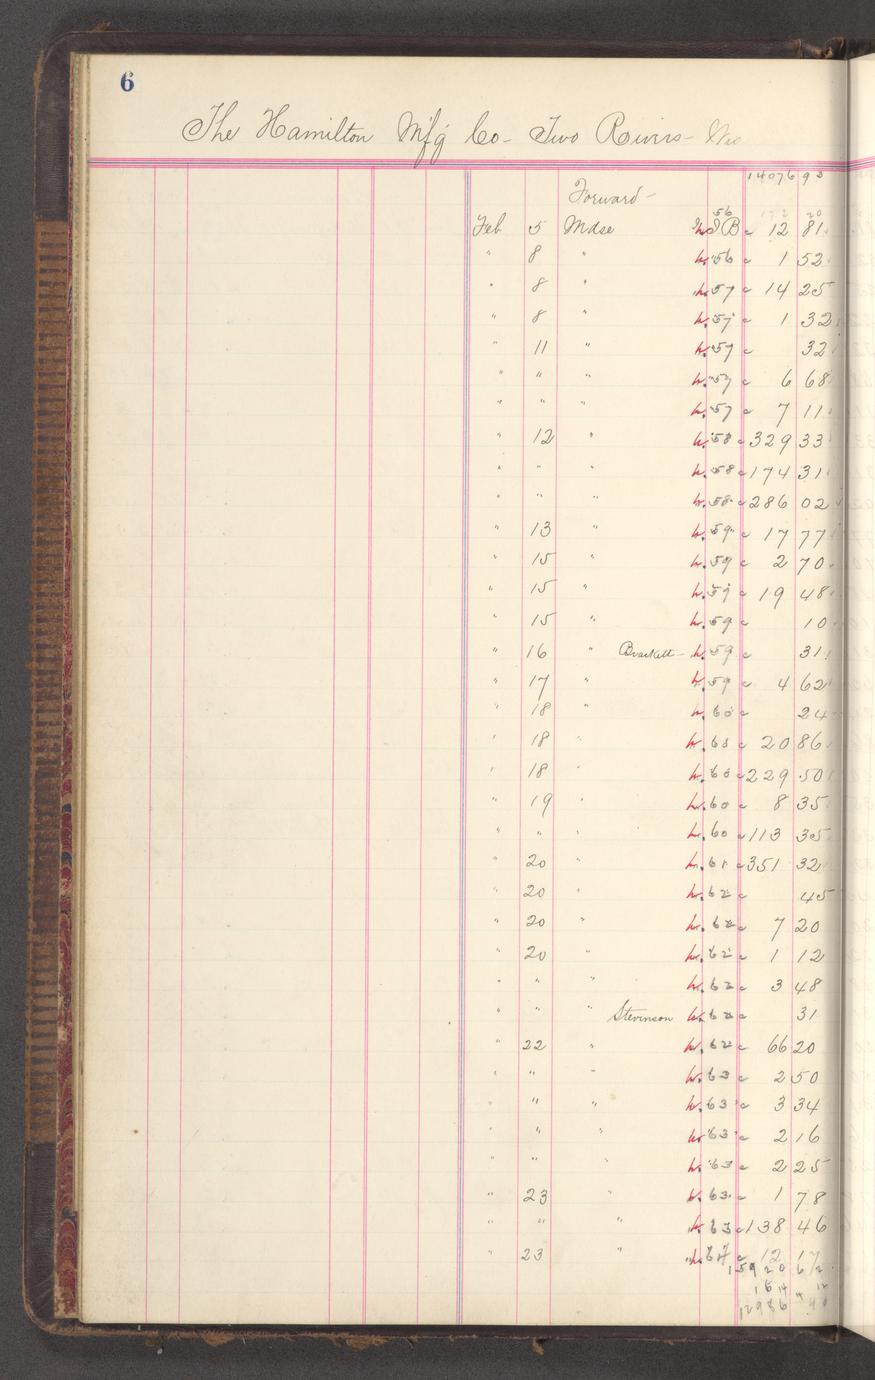 6
The Hamilton Mfg Co - Two Rivers - Wis
14076 93
Forward -
56
Feb 5 Mdse S.B 12 81
" 8 " 56 1 52
" 8 " 57 14 25
" 8 " 57 1 32
" 11 " 57 32
" " " 57 6 68
" " " 57 7 11
" 12 " 58 329 33
" " " 58 174 31
" " " 58 286 02
" 13 " 59 17 77
" 15 " 59 2 70
" 15 " 59 19 48
" 15 " 59 10
" 16 " Brackett - 59 31
" 17 " 59 4 62
" 18 " 60 24
" 18 " 60 20 86
" 18 " 60 229 50
" 19 " 60 8 35
" " " 60 113 35
" 20 " 61 351 32
" 20 " 62 45
" 20 " 62 7 20
" 20 " 62 1 12
" " " 62 3 48
" " " Stevinson 62 31
" 22 " 62 66 20
" " " 63 2 50
" " " 63 3 34
" " " 63 2 16
" " " 63 2 25
" 23 " 63 1 78
" " " 63 138 46
" 23 " 64 12 17